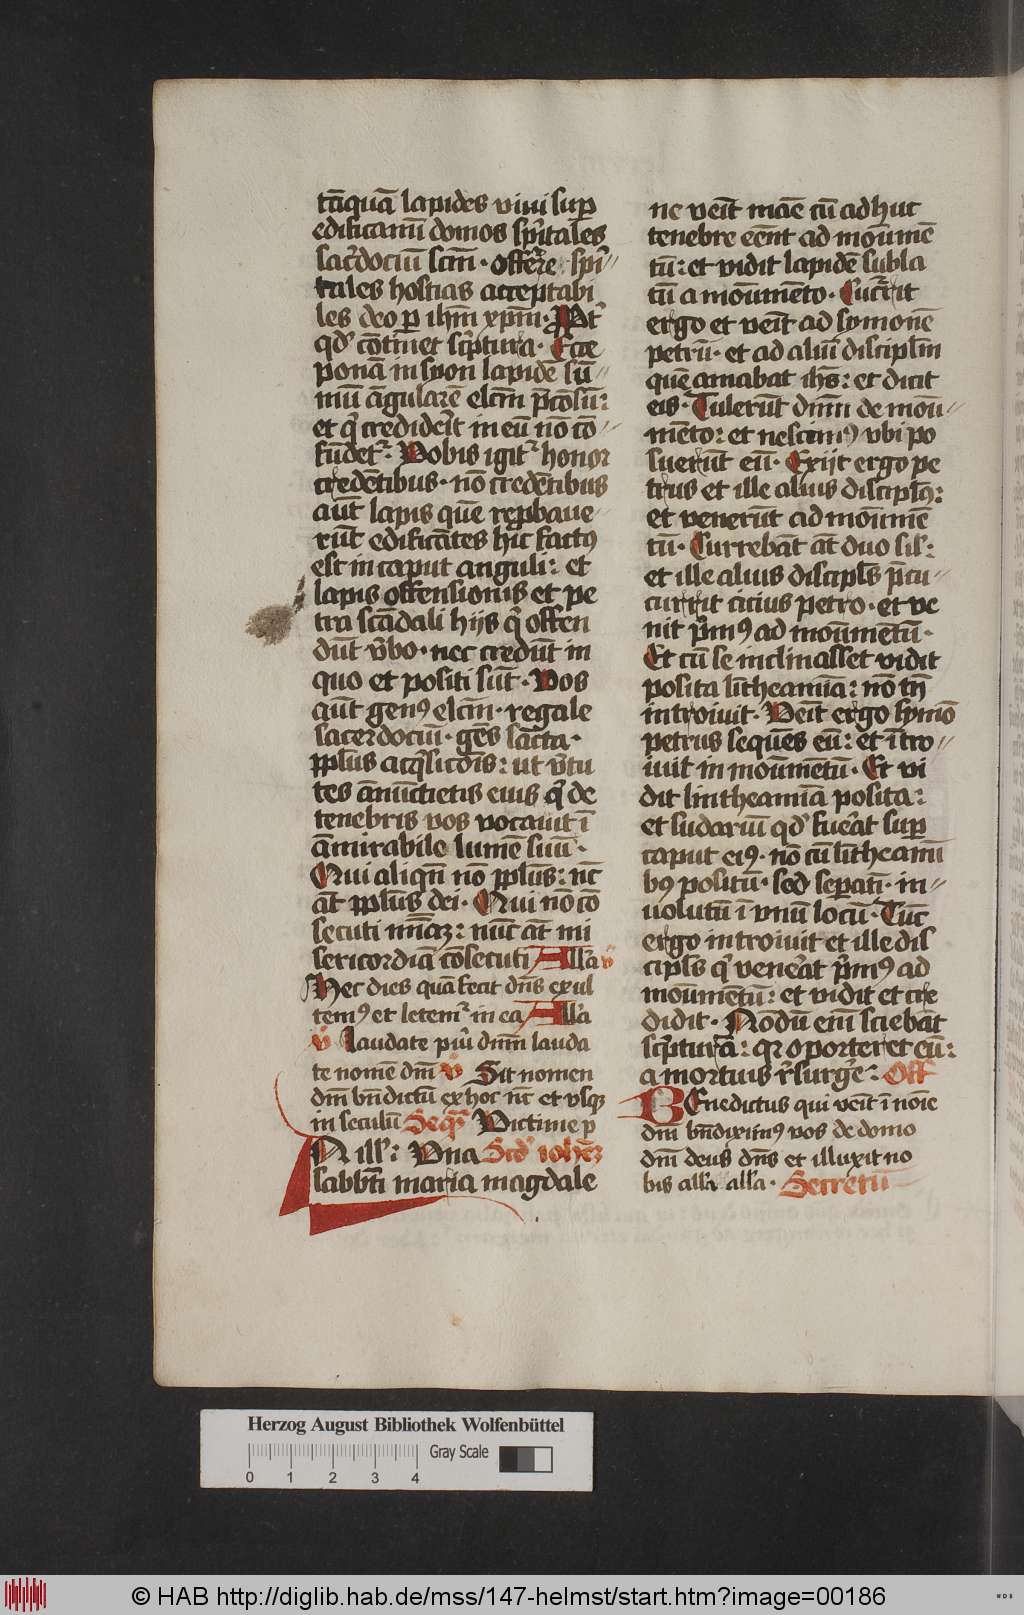 tāquā lapides vini suꝑ
edificamī domos spi̅tales
sac̅dociū scm̅ · offer̅e spi̅〃
tales hostias acceptabi
les deo ꝑ ihm̅ xpm̅ · Pt᷒
qd̕ cōtinet sc̅ptura · Ecce
ponā in syon lapidē sū〃
mū āngularē elcm̅ p̅cosū:
et q̅ credide̅it in eū nō cō〃
fūdet᷒ · Vobis igit᷒ honor
credētibus · nō credētibus
aūt lapis quē rep̱baue〃
rūt edificātes hic factꝰ
est in caput anguli: et
lapis offensionis et pe
tra scādali hijs q̅ offen
dūt v̅bo · nec credūt in
quo et positi sūt · Vos
aūt genꝰ elcm̅ · regale
sacerdociū · gēs sāncta ·
ppl̅us acq̅sicōis: ut v̅tu
tes ānūctietis eius q̅ de
tenebris vos vocauit ī
āmirabile lumē suū ·
Qui aliqn̅ nō ppl̅us: nc̅
āt ppl̅us dei · Qui nō cō
secuti mīaꝫ: nūc āt mi
sericordiā cōsecuti All̅a v̅
Hec dies quā fecit dn̅s exul
temꝰ et letem᷒ in ea All̅a
v̅ Laudate pu̅i dnm̅ lauda
te nomē dm̅ v̅ Sit nomen
dm̅ bn̅dictū ex hoc nc̅ et vsqꝫ
in seculū Seqꝫ Victime p
N ill᷒: Vna Scd̕ iohēꝫ
sabbt̅i maria magdale
ne veit̅ māe cū adhuc
tenebre eēnt ad monumē
tū: et vidit lapidē subla
tū a monumēto · Cuc̅rit
ergo et veit̅ ad symonē
petrū · et ad aliū discipl̅m
quē amabat ihs̅: et dicit
eis · Tulerūt dnm̅ de monu〃
mēto: et nescimꝰ vbi po
suerūt eū · Exijt ergo pe
trus et ille alius discipl̅s:
et venerūt ad monumē
tū · Currebāt āt duo sil᷒:
et ille alius discipl̅s p̅cu〃
currit cicius petro · et ve
nit p̅mꝰ ad monumētū ·
Et cū se inclinasset vidit
posita li̅theamīa: nō tn̅
introiuit · Veit̅ ergo symō
petrus sequēs eū: et ītro〃
iuit in monumētū · Et vi
dit lintheamīa posita:
et sudariū qd̕ fue̅at suꝑ
caput eiꝰ · nō cū li̅theamī
bꝰ positū · sed separati̅ · in〃
uolutū ī vnū locū · Tūc
ergo introiuit et ille dis
cipl̅s q̅ vene̅at p̅mꝰ ad
monumētū: et vidit et cre
didit · Nōdū em̅ sciebāt
sc̅pturā: qꝛ oporteret eū:
a mortuis r̅surge̅: Off
BEnedictus qui veit̅ ī noīe
dm̅ bn̅diximꝰ vos de domo
dm̅ deus dn̅s et illuxit no
bis all̅a all̅a · Secretū
Herzog August Bibliothek Wolfenbüttel
Gray Scale
0 1 2 3 4
© HAB http://diglib.hab.de/mss/147-helmst/start.htm?image=00186